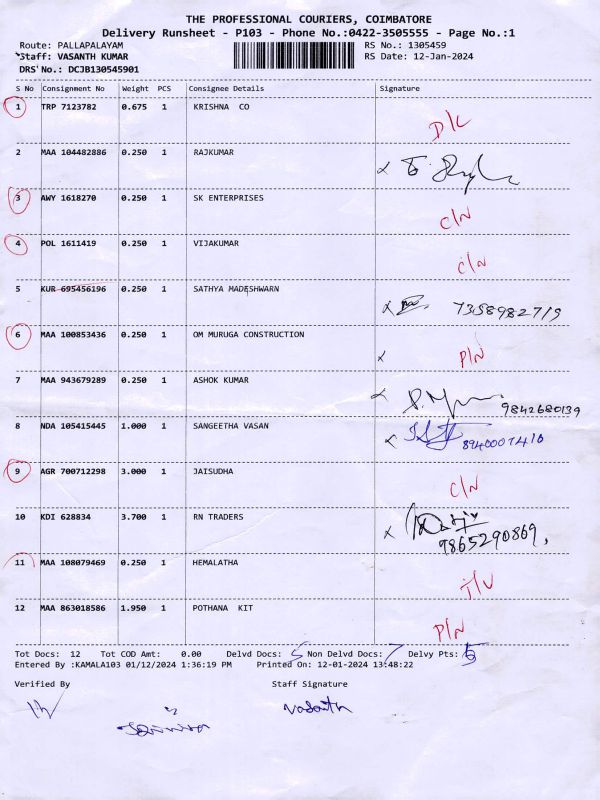 THE PROFESSIONAL COURIERS, COIMBATORE
Delivery Runsheet - P103 - Phone No.:0422-3505555 - Page No.:1
Route: PALLAPALAYAM RS No.: 1305459
Staff: VASANTH KUMAR RS Date: 12-Jan-2024
DRS No.: DCJB130545901
S No Consignment No Weight PCS Consignee Details Signature
1 TRP 7123782 0.675 1 KRISHNA CO D/L
2 MAA 104482886 0.250 1 RAJKUMAR
3 AWY 1618270 0.250 1 SK ENTERPRISES C/N
4 POL 1611419 0.250 1 VIJAKUMAR C/N
5 KUR 695456196 0.250 1 SATHYA MADESHWARN 7358982719
6 MAA 100853436 0.250 1 OM MURUGA CONSTRUCTION P/N
7 MAA 943679289 0.250 1 ASHOK KUMAR 9842680139
8 NDA 105415445 1.000 1 SANGEETHA VASAN 8940007410
9 AGR 700712298 3.000 1 JAISUDHA C/N
10 KDI 628834 3.700 1 RN TRADERS 9865290869,
11 MAA 108079469 0.250 1 HEMALATHA I/V
12 MAA 863018586 1.950 1 POTHANA KIT P/N
Tot Docs: 12 Tot COD Amt: 0.00 Delvd Docs: 5 Non Delvd Docs: 7 Delvy Pts: 5
Entered By :KAMALA103 01/12/2024 1:36:19 PM Printed On: 12-01-2024 13:48:22
Verified By Staff Signature
Vasanth